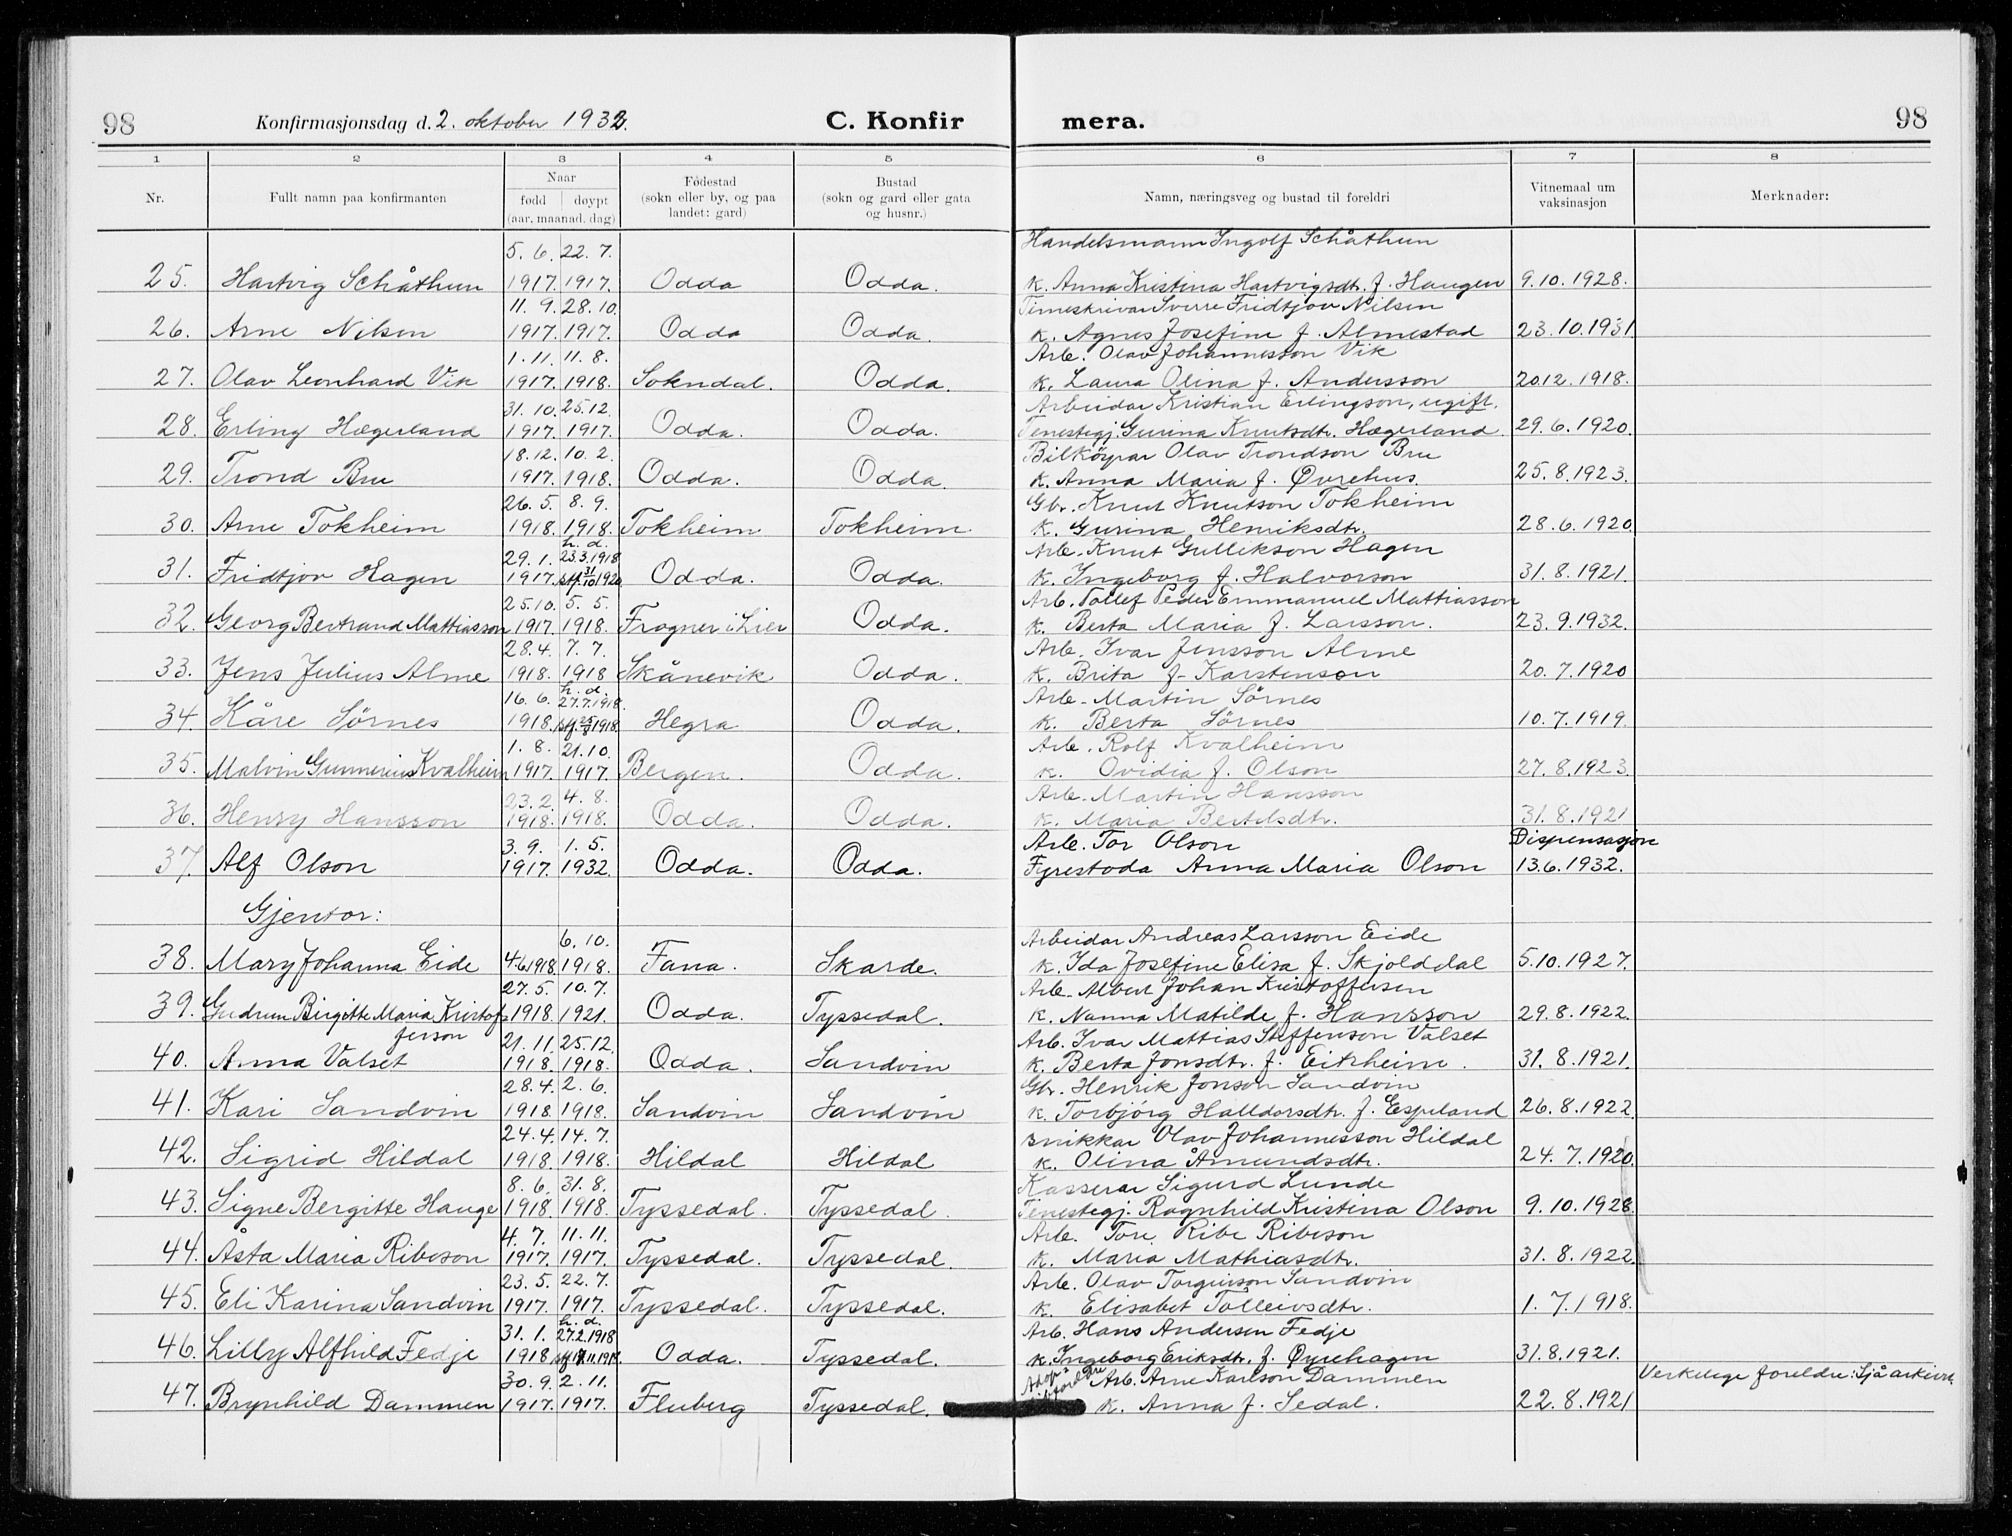 98 Konfirmasjonsdag d. 2. oktober 1932. C. Konfir mera. 98
1 2 3 4 5 6 7 8
Nr. Fullt namn paa konfirmanten Naar Fødestad Bustad Namn, næringsveg og bustad til foreldri Vitnemaal um Merknader:
fødd døypt (sokn eller by, og paa (sokn og gard eller gata vaksinasjon
(aar, maanad. dag) landet: gard) og husnr.)
5. 6. 22. 7. Handelsmann Ingolf Schåthun
25. Hartvig Schåthun 1917. 1917. Odda Odda. k. Anna Kristina Hartvigsdt. f. Haugen 9.10.1928.
11. 9. 28. 10. Timeskrivar Sverre Fridtjov Nilsen
26. Arne Nilsen 1917. 1917. Odda Odda. k. Agnes Josefine f. Almestad 23.10.1931
1. 11. 11. 8. Arb. Olav Johannesson Vik
27. Olav Leonhard Vik 1917. 1918. Sokndal. Odda. k. Laura Olina f. Andersson 20.12.1918.
31. 10. 25.12. Arbeidar Kristian Erlingson, ugift.
28. Erling Hægerland 1917. 1917. Odda. Odda. Tenestegj. Gurina Knutsdt. Hægerland. 29.6.1920.
18. 12. 10. 2. Bilköyrar Olav Trondson Bru
29. Trond Bru 1917. 1918. Odda. Odda. k. Anna Maria f. Øvrehus. 25.8.1923.
26. 5. 8. 9. Gbr. Knut Knutson Tokheim
30. Arne Tokheim 1918. 1918. Tokheim Tokheim k. Gurina Henriksdtr. 28.6.1920
h. d.
29. 1. 23.3.1918 Arb. Knut Gullikson Hagen
31. Fridtjov Hagen 1917. stf. 31/10 1920 Odda. Odda. k. Ingeborg f. Halvorson 31.8.1921.
25.10. 5. 5. Arb. Tollef Peder Emmanuel Mattiasson
32. Georg Bertrand Mattiasson 1917. 1918. Frogner i Lier Odda. k. Berta Maria f. Larsson. 23.9.1932.
28.4. 7. 7. Arb. Ivar Jensson Alme
33. Jens Julius Alme 1918. 1918 Skånevik Odda. k. Brita f. Karstenson 20.7.1920
h. d.
16. 6. 27.7.1918. Arb. Martin Sörnes
34. Kåre Sörnes 1918. stf. 25/8 1918. Hegra Odda. k. Berta Sörnes 10.7.1919.
1. 8. 21.10. Arb. Rolf Kvalheim
35. Malvin Gunnerius Kvalheim 1917. 1917. Bergen. Odda. k. Ovidia f. Olson 27.8.1923.
23.2. 4. 8. Arb. Martin Hansson
36. Henry Hansson 1918. 1918. Odda. Odda. k. Maria Bertelsdtr. 31.8.1921
3. 9. 1. 5. Arb. Tor Olson Dispensasjon
37. Alf Olson 1917. 1932. Odda. Odda. Fyrestoda Anna Maria Olson 13.6.1932.
Gjentor:
6. 10. Arbeidar Andreas Larsson Eide
38. Mary Johanna Eide 4.6.1918. 1918. Fana. Skarde. k. Ida Josefine Elisa f. Skjolddal 5.10.1927.
27. 5. 10. 7. Arb. Albert Johan Kristoffersen
39. Gudrun Birgitte Maria Kristof- 1918. 1921. Odda. Tyssedal. k. Nanna Matilde f. Hansson 29.8.1922.
ferson 21. 11. 25.12. Arb. Ivar Mattias Steffenson Valset
40. Anna Valset 1918. 1918. Odda. Sandvin k. Berta Jonsdtr. f. Eitrheim. 31.8.1921.
28.4. 2. 6. Gbr. Henrik Jonson Sandvin
41. Kari Sandvin 1918. 1918. Sandvin Sandvin k. Torbjörg Halldorsdtr. f. Espeland 26.8.1922
24.4. 14.7. Snikkar Olav Johannesson Hildal
42. Sigrid Hildal 1918. 1918. Hildal Hildal k. Olina Åmundsdtr. 24.7.1920.
8. 6. 31.8. Kasserar Sigurd Lunde
43. Signe Bergitte Hauge 1918. 1918. Tyssedal. Tyssedal. Tenestegj. Ragnhild Kristina Olson 9.10.1928
4. 7. 11.11. Arb. Tore Ribe Ribeson
44. Åsta Maria Ribeson 1917. 1917. Tyssedal. Tyssedal. k. Maria Mathiasdtr. 31.8.1922
23. 5. 22. 7. Arb. Olav Torgeirson Sandvin
45. Eli Karina Sandvin 1917. 1917. Tyssedal. Tyssedal. k. Elisabet Tolleivsdtr. 1.7.1918.
h. d.
31. 1. 27.2.1918 Arb. Hans Andersen Fedje
46. Lilly Alfhild Fedje 1918 Odda. Tyssedal. k. Ingeborg Eriksdtr. f. Øyrehagen 31.8.1921.
30. 9. 2. 11. Arb. Arne Karlson Dammen Verkelege foreldre: Sjå arkivet.
47. Brynhild Dammen 1917. 1917. Fluberg Tyssedal. k. Anna f. Sedal. 22.8.1921